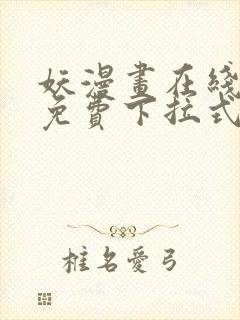 妖漫畫在綫
免費下拉式
椎名愛弓